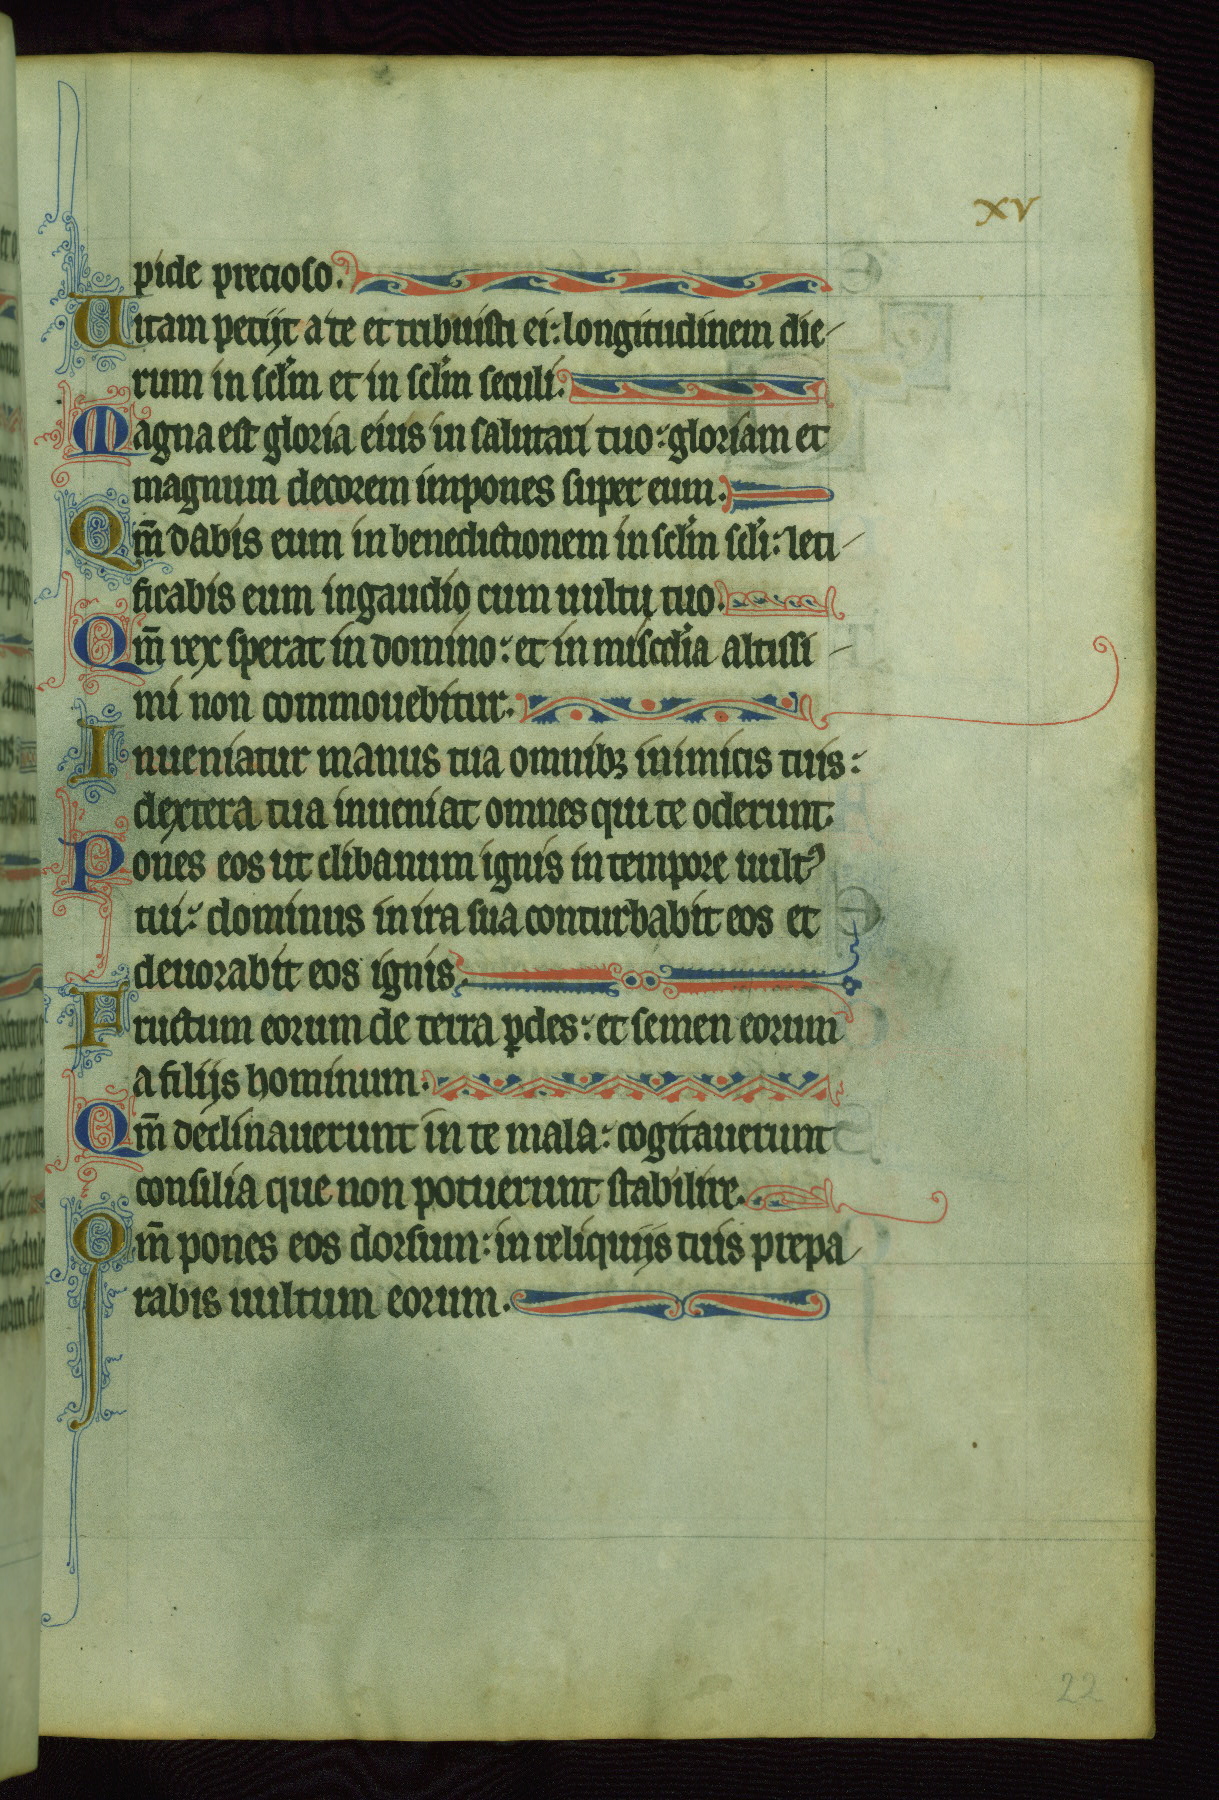 xv
pide precioso.
Uitam petijt a te et tribuisti ei: longitudinem die
rum in sclm et in sclm seculi.
Magna est gloria eius in salutari tuo: gloriam et
magnum decorem impones super eum.
Qm̄ dabis eum in benedictionem in sclm scli: leti
ficabis eum in gaudio cum uultu tuo.
Qm̄ rex sperat in domino: et in miscdia altissi
mi non commouebitur.
Inueniatur manus tua omnibꝫ inimicis tuis:
dextera tua inueniat omnes qui te oderunt.
Pones eos ut clibanum ignis in tempore uultꝰ
tui: dominus in ira sua conturbabit eos et
deuorabit eos ignis.
Fructum eorum de terra ꝑdes: et semen eorum
a filijs hominum.
Qm̄ declinauerunt in te mala: cogitauerunt
consilia que non potuerunt stabilire.
Qm̄ pones eos dorsum: in reliquijs tuis prepa
rabis uultum eorum.
22